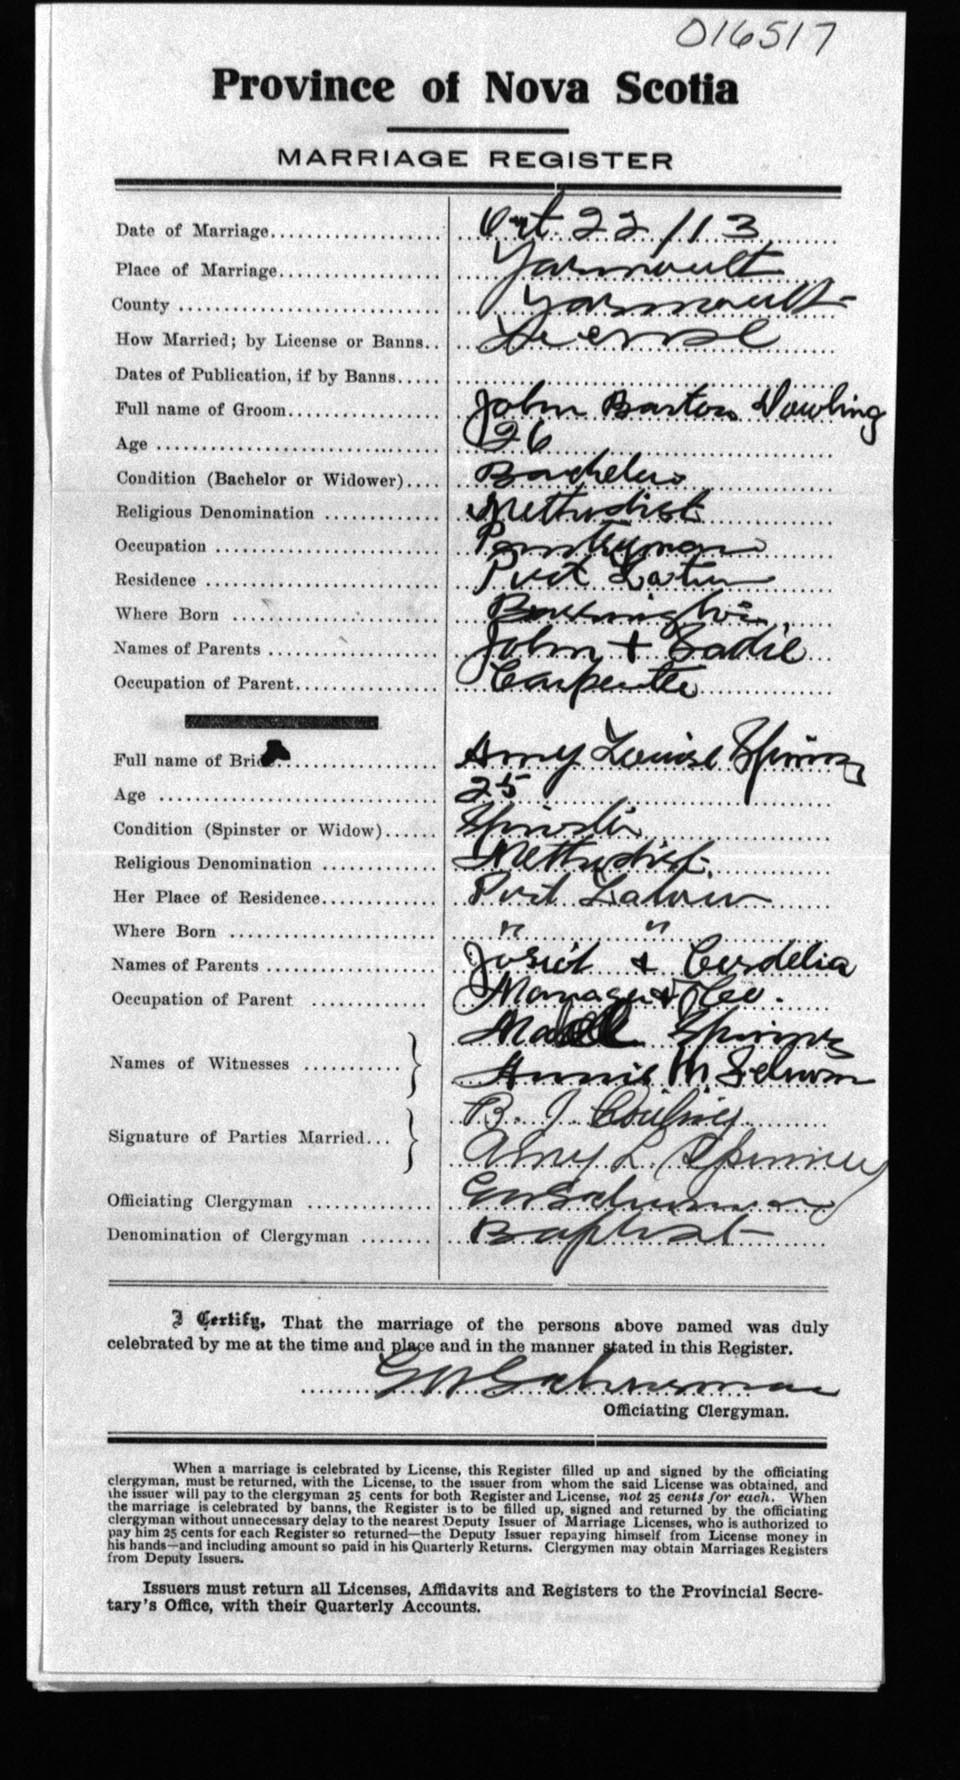 016517
Province of Nova Scotia
MARRIAGE REGISTER
Date of Marriage Oct 22/13
Place of Marriage Yarmouth
County Yarmouth
How Married; by License or Banns License
Dates of Publication, if by Banns
Full name of Groom John Barton
Age 26
Condition (Bachelor or Widower) Bachelor
Religious Denomination Methodist
Occupation
Residence Port Latour
Where Born
Names of Parents John + Sadie
Occupation of Parent Carpenter
Full name of Bride Amy Louise Spinney
Age 25
Condition (Spinster or Widow) Spinster
Religious Denomination Methodist
Her Place of Residence Port Latour
Where Born " "
Names of Parents Josiah & Cordelia
Occupation of Parent Manager
Names of Witnesses Spinney
Annie M
Signature of Parties Married B. J.
Amy L. Spinney
Officiating Clergyman G W Schurman
Denomination of Clergyman Baptist
I Certify, That the marriage of the persons above named was duly
celebrated by me at the time and place and in the manner stated in this Register.
G W Schurman
Officiating Clergyman.
When a marriage is celebrated by License, this Register filled up and signed by the officiating
clergyman, must be returned, with the License, to the issuer from whom the said License was obtained, and
the issuer will pay to the clergyman 25 cents for both Register and License, not 25 cents for each. When
the marriage is celebrated by banns, the Register is to be filled up, signed and returned by the officiating
clergyman without unnecessary delay to the nearest Deputy Issuer of Marriage Licenses, who is authorized to
pay him 25 cents for each Register so returned—the Deputy Issuer repaying himself from License money in
his hands—and including amount so paid in his Quarterly Returns. Clergymen may obtain Marriages Registers
from Deputy Issuers.
Issuers must return all Licenses, Affidavits and Registers to the Provincial Secre-
tary's Office, with their Quarterly Accounts.